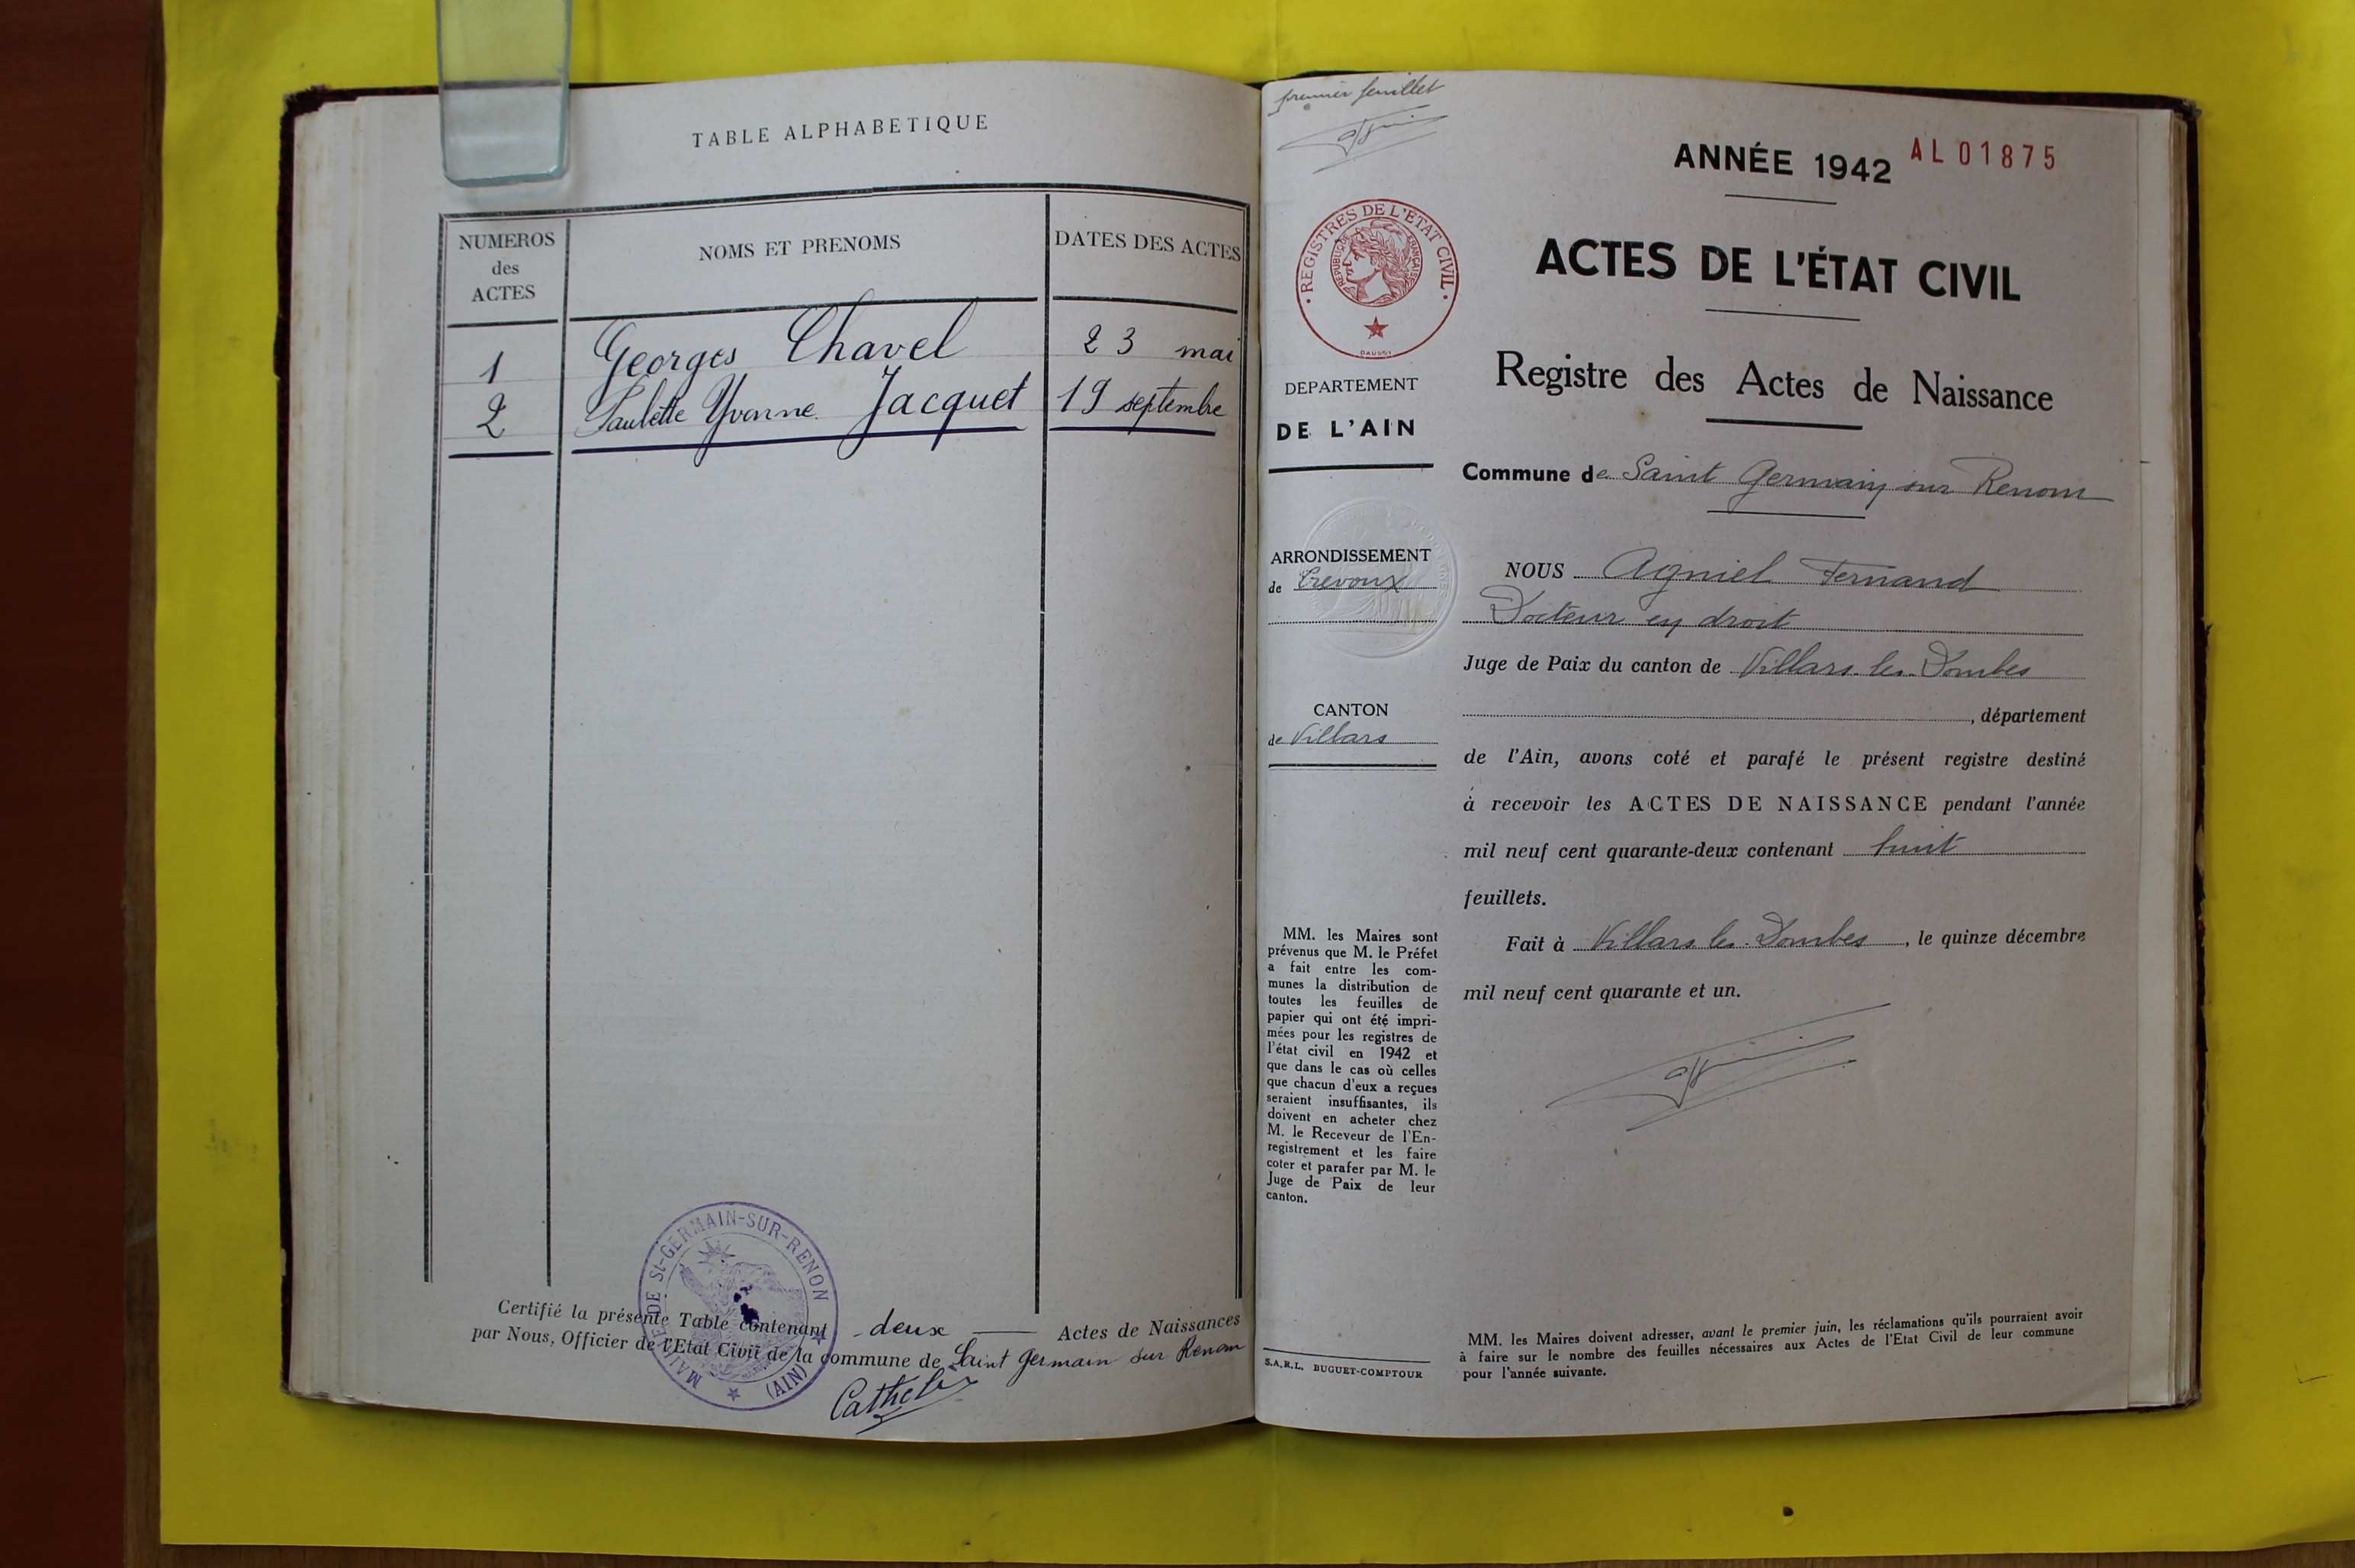 TABLE ALPHABETIQUE
NUMEROS
des
ACTES
NOMS ET PRENOMS
DATES DES ACTES
1 Georges Chavel 23 mai
2 Paulette Yvonne Jacquet 19 septembre
MAIRIE DE St-GERMAIN-SUR-RENON
(AIN)
Certifié la présente Table contenant deux Actes de Naissances
par Nous, Officier de l'Etat Civil de la commune de Saint Germain sur Renon
premier feuillet
REGISTRES DE L'ETAT CIVIL
REPUBLIQUE FRANÇAISE
DEPARTEMENT
DE L'AIN
ARRONDISSEMENT
de Trevoux
CANTON
de Villars
MM. les Maires sont
prévenus que M. le Préfet
a fait entre les com-
munes la distribution de
toutes les feuilles de
papier qui ont été impri-
mées pour les registres de
l'état civil en 1942 et
que dans le cas où celles
que chacun d'eux a reçues
seraient insuffisantes, ils
doivent en acheter chez
M. le Receveur de l'En-
registrement et les faire
coter et parafer par M. le
Juge de Paix de leur
canton.
S.A.R.L. BUGUET-COMPTOUR
ANNÉE 1942 AL 01875
ACTES DE L'ÉTAT CIVIL
Registre des Actes de Naissance
Commune de Saint Germain sur Renom
NOUS Agniel Fernand
Docteur en droit
Juge de Paix du canton de Villars-les-Dombes
, département
de l'Ain, avons coté et parafé le présent registre destiné
à recevoir les ACTES DE NAISSANCE pendant l'année
mil neuf cent quarante-deux contenant huit
feuillets.
Fait à Villars les Dombes, le quinze décembre
mil neuf cent quarante et un.
MM. les Maires doivent adresser, avant le premier juin, les réclamations qu'ils pourraient avoir
à faire sur le nombre des feuilles nécessaires aux Actes de l'Etat Civil de leur commune
pour l'année suivante.